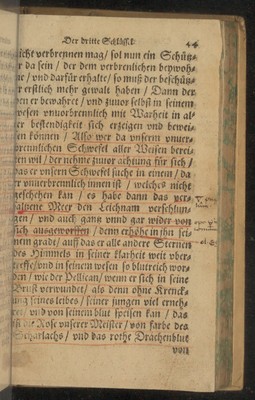 Der dritte Schlüssel 44
nicht verbrennen mag/ sol nun ein Schütz-
er da sein / der dem verbrenlichen beywoh-
ne/ vnd darfür erhalte/ so muß der beschütz-
er erstlich mehr gewalt haben / Dann der
den er bewahret / vnd zuuor selbst in seinem
wesen vnuorbrennlich mit Warheit in al-
ler bestendigkeit sich erzeigen vnd bewei-
sen können / Also wer da vnsern vnuer-
brennlichen Schwefel aller Weisen berei-
ten wil / der nehme zuuor achtung für sich /
das er vnsern Schwefel suche in einem / da
er vnuerbrennlich innen ist / welches nicht
geschehen kan / es habe dann das
Meer den Leichnam verschlun-
gen / vnd auch gantz vnnd gar wider von
sich ausgeworffen / denn erhöhe in ihn sei-
nem grade / auff das er alle andere Sternen
des Himmels in seiner klarheit weit vber-
treffe / vnd in seinem wesen so blutreich wor-
den / wie der Pellican / wenn er sich in seine
Brust verwundet / als denn ohne Krenck-
ung seines leibes / seiner jungen viel erneh-
ret / vnd von seinem blut speisen kan / das
ist die Rose vnserer Meister / von farbe des
Scharlachs / vnd das rothe Drachenblut
von